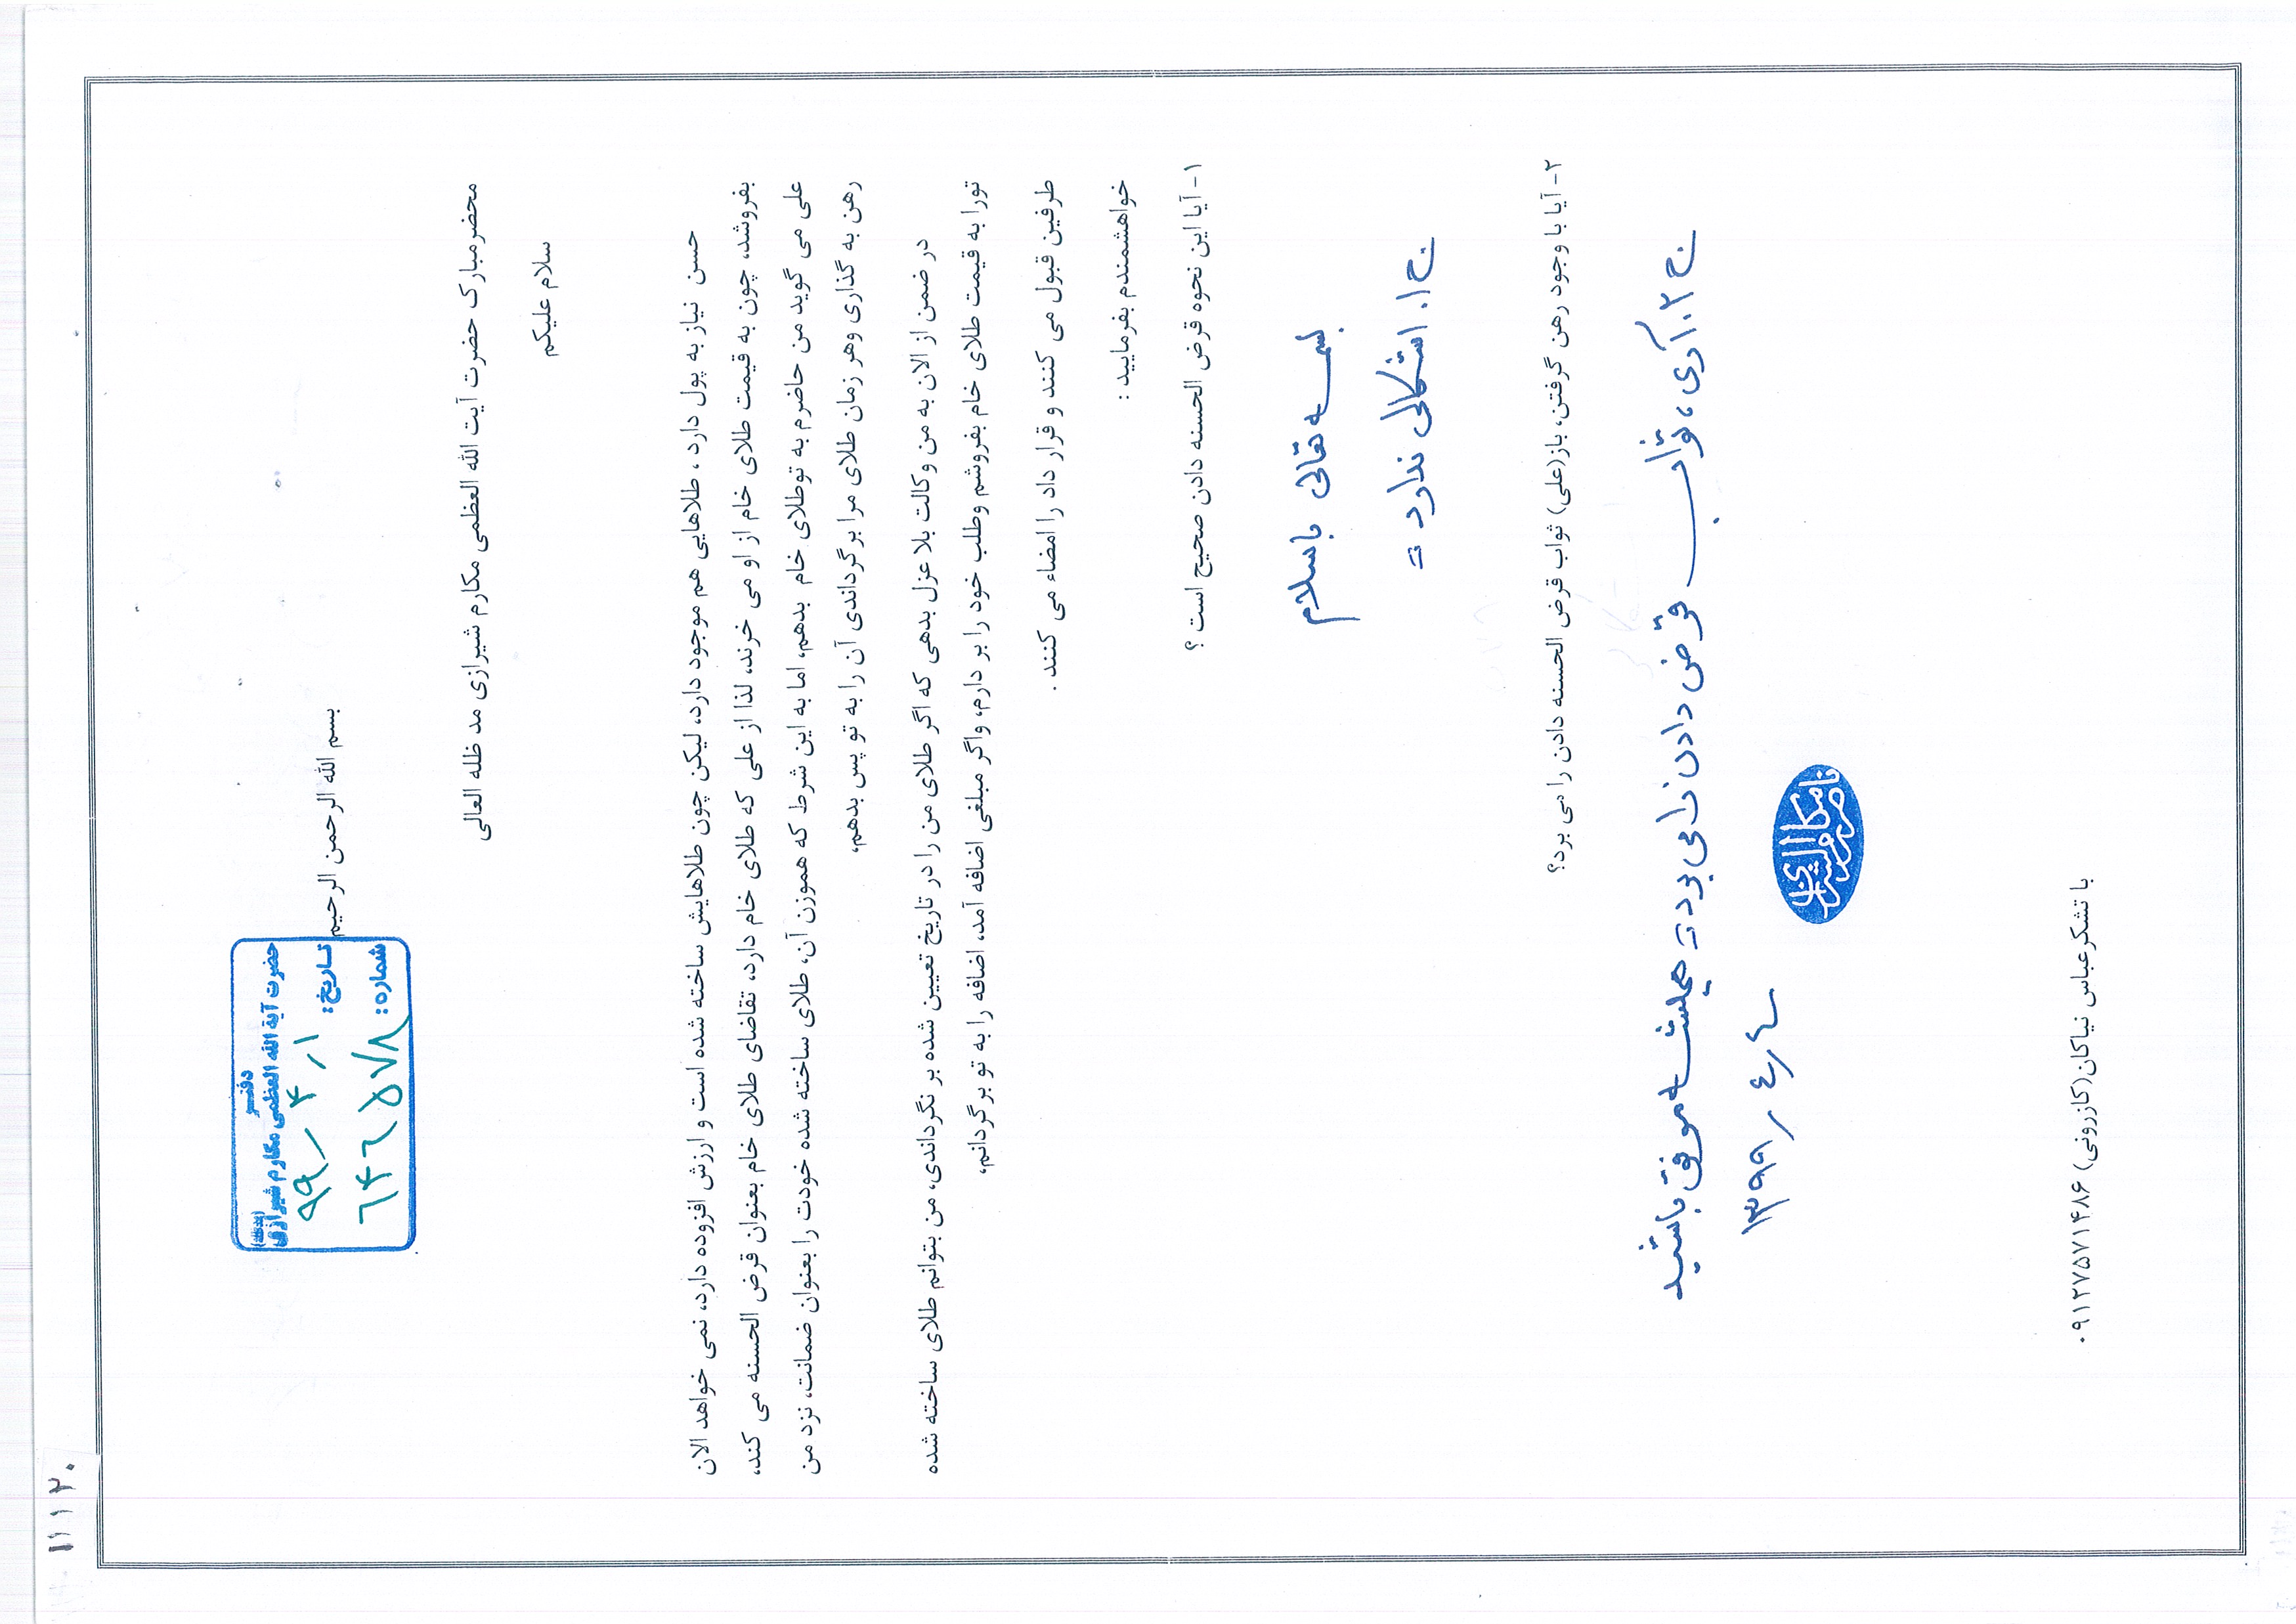 ۱۱۱۲۰
دفتر
حضرت آیة الله العظمی مکارم شیرازی
تاریخ: ۹۹/۴/۱
شماره: ۶۴۶۵۷۸
بسم الله الرحمن الرحیم
محضر مبارک حضرت آیت الله العظمی مکارم شیرازی مد ظله العالی
سلام علیکم
حسن نیاز به پول دارد ، طلاهایی هم موجود دارد، لیکن چون طلاهایش ساخته شده است و ارزش افزوده دارد، نمی خواهد الان
بفروشد، چون به قیمت طلای خام از او می خرند، لذا از علی که طلای خام دارد، تقاضای طلای خام بعنوان قرض الحسنه می کند،
علی می گوید من حاضرم به تو طلای خام بدهم، اما به این شرط که هموزن آن، طلای ساخته شده خودت را بعنوان ضمانت، نزد من
رهن به گذاری وهر زمان طلای مرا برگرداندی آن را به تو پس بدهم،
در ضمن از الان به من وکالت بلا عزل بدهی که اگر طلای من را در تاریخ تعیین شده بر نگرداندی، من بتوانم طلای ساخته شده
تورا به قیمت طلای خام بفروشم وطلب خود را بر دارم، واگر مبلغی اضافه آمد، اضافه را به تو برگردانم،
طرفین قبول می کنند و قرار داد را امضاء می کنند .
خواهشمندم بفرمایید :
۱- آیا این نحوه قرض الحسنه دادن صحیح است ؟
بسمه تعالی باسلام
ج۱. اشکالی ندارد =
۲- آیا با وجود رهن گرفتن، باز(علی) ثواب قرض الحسنه دادن را می برد؟
ج۲. آری، ثواب قرض دادن را می برد = همیشه موفق باشید
۱۳۹۹/۴/۴
ناصر مکارم الشیرازی
با تشکر عباس نیاکان(کازرونی) ۰۹۱۲۷۵۷۱۴۸۶